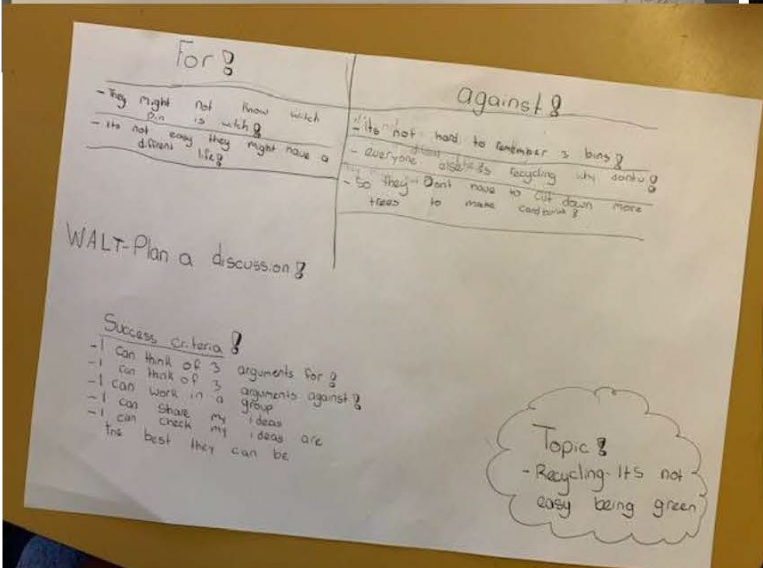 For!
- They might not know witch
bin is witch!
- Its not easy they might have a
diffrent life!
against!
- its not hard to remember 3 bins!
- everyone else is recycling why dont u!
- So they Dont have to cut down more
trees to make
WALT-Plan a discussion!
Success criteria!
- I can think of 3 arguments for!
- I can think of 3 arguments against!
- I can work in a group
- I can share my ideas
- I can check my ideas are
the best they can be
Topic!
- Recycling- Its not
easy being green